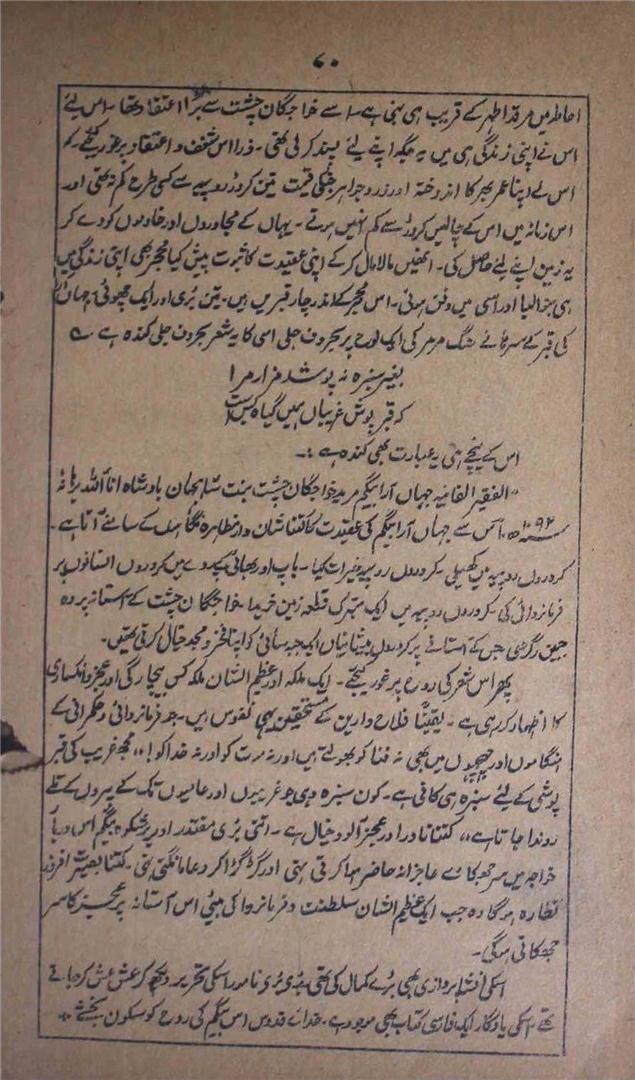 ۷۰
احاطہ میں مرقد اطہر کے قریب ہی بنی ہے۔ اسے خواجگان چشت سے بڑا اعتقاد تھا۔ اس لئے
اس نے اپنی زندگی ہی میں یہ جگہ اپنے لئے پسند کر لی تھی۔ ذرا اس شغف و اعتقاد پر غور کیجئے۔ کہ
اس نے اپنا عمر بھر کا اندوختہ اور زر و جواہر جنکی قیمت تین کروڑ روپیہ سے کسی طرح کم نہ تھی اور
اس زمانہ میں اس کے چالیس کروڑ سے کم نہیں ہوتے۔ یہاں کے مجاوروں اور خادموں کو دے کر
یہ زمین اپنے لئے حاصل کی۔ انھیں مالا مال کر کے اپنی عقیدت کا ثبوت پیش کیا محجر بھی اپنی زندگی میں
ہی بنوالیا اور اسی میں دفن ہوئی۔ اس محجر کے اندر چار قبریں ہیں۔ تین بڑی اور ایک چھوٹی۔ جہاں آرا
کی قبر کے سرہانے سنگ مرمر کی ایک لوح پر بحروف جلی اسی کا یہ شعر بحروف جلی کندہ ہے ؎
بغیر سبزہ نہ پوشد مزار مرا
کہ قبر پوش غریباں ہمیں گیاہ بس است
اس کے نیچے ہی یہ عبارت بھی کندہ ہے :۔
"الفقیر الفانیہ جہاں آرا بیگم مرید خواجگان چشت بنت شاہجہان بادشاہ انار اللہ برہانہ
سنہ ۱۰۹۲ھ۔ اس سے جہاں آرا بیگم کی عقیدت کا کتنا شان دار نظارہ نگاہوں کے سامنے آتا ہے۔
کروڑوں روپیہ میں کھیلی۔ کروڑوں روپیہ خیرات کیا۔ باپ اور بھائی کے پردے میں کروڑوں انسانوں پر
فرمانروائی کی۔ کروڑوں روپیہ میں ایک متبرک قطعہ زمین خریدا۔ خواجگان چشت کے آستانہ پر وہ
جبیں رگڑی جس کے آستانے پر کروڑوں پیشانیاں ایک جبہ سائی کو اپنا فخر و مجد خیال کرتی تھیں۔
پھر اس شعر کی روح پر غور کیجئے۔ ایک ملکہ اور عظیم الشان ملکہ کس بیچارگی اور عجز و انکساری
کا اظہار کر رہی ہے۔ یقیناً فلاح دارین کے مستحقین یہی نفوس ہیں۔ جو فرمانروائی و حکمرانی کے
ہنگاموں اور چہچہوں میں بھی نہ فنا کو بھولتے ہیں اور نہ موت کو اور نہ خدا کو! "مجھ غریب کی قبر
پوشی کے لئے سبزہ ہی کافی ہے۔ کون سبزہ وہی جو غریبوں اور عامیوں تک کے پیروں کے تلے
روندا جاتا ہے" کتنا نادر اور عجز آلود خیال ہے۔ اتنی بڑی مقتدر اور پرشکوہ بیگم اس دربار
خواجہ میں سر جھکائے عاجزانہ حاضر ہوا کرتی تھی اور گڑگڑا کر دعا مانگتی تھی۔ کتنا بصیرت افروز
نظارہ ہو گا وہ جب ایک عظیم الشان سلطنت و فرمانروا کی بیٹی اس آستانہ پر عجز کا سر
جھکاتی ہوگی۔
اسکی انشا پردازی بھی بڑے کمال کی تھی۔ بڑی بڑی نامور اسکی تحریر دیکھ کر عش عش کر جاتے
تھے۔ اسکی یادگار ایک فارسی کتاب بھی موجود ہے۔ خدائے قدوس اس بیگم کی روح کو سکون بخشے۔